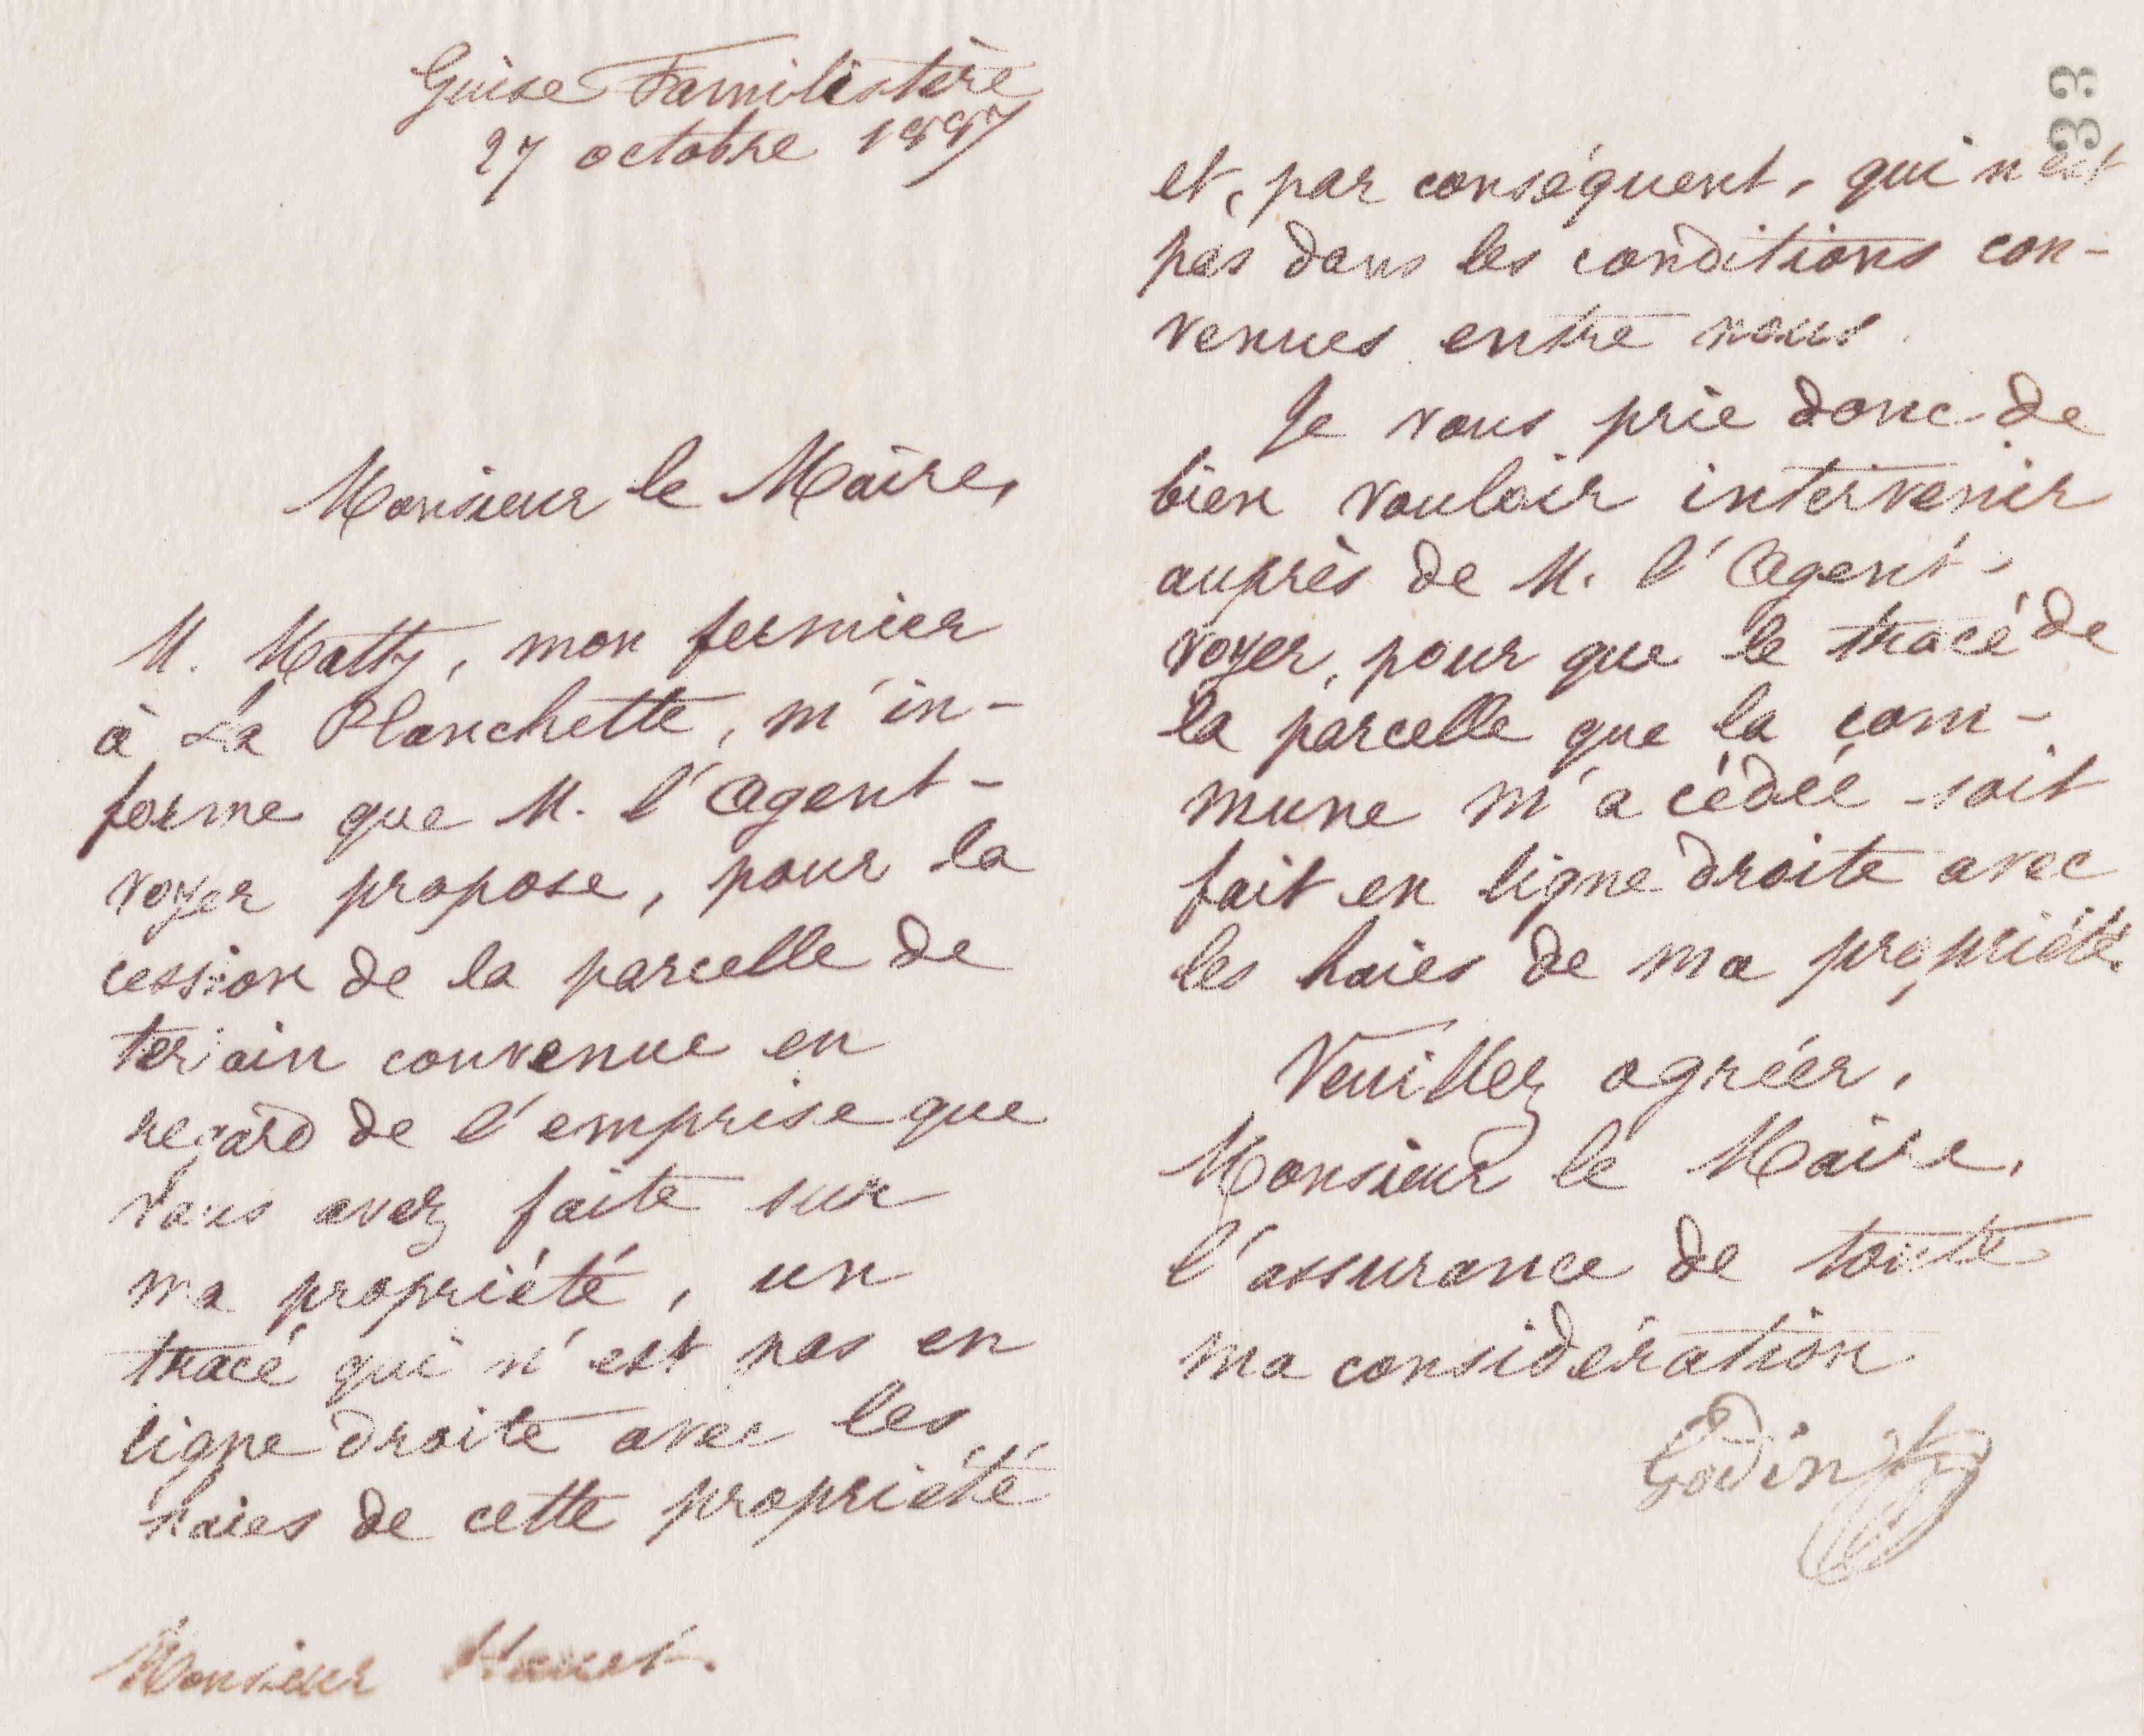 Guise Familistère
27 octobre 1887
Monsieur le Maire,
M. Matty, mon fermier
à La Planchette, m'in-
forme que M. l'Agent-
voyer propose, pour la
cession de la parcelle de
terrain convenue en
regard de l'emprise que
vous avez faite sur
ma propriété, un
tracé qui n'est pas en
ligne droite avec les
haies de cette propriété
Monsieur
33
et, par conséquent, qui n'est
pas dans les conditions con-
venues entre nous.
Je vous prie donc de
bien vouloir intervenir
auprès de M. l'Agent-
voyer, pour que le tracé de
la parcelle que la com-
mune m'a cédée soit
fait en ligne droite avec
les haies de ma propriété.
Veuillez agréer,
Monsieur le Maire,
l'assurance de toute
ma considération
Godin